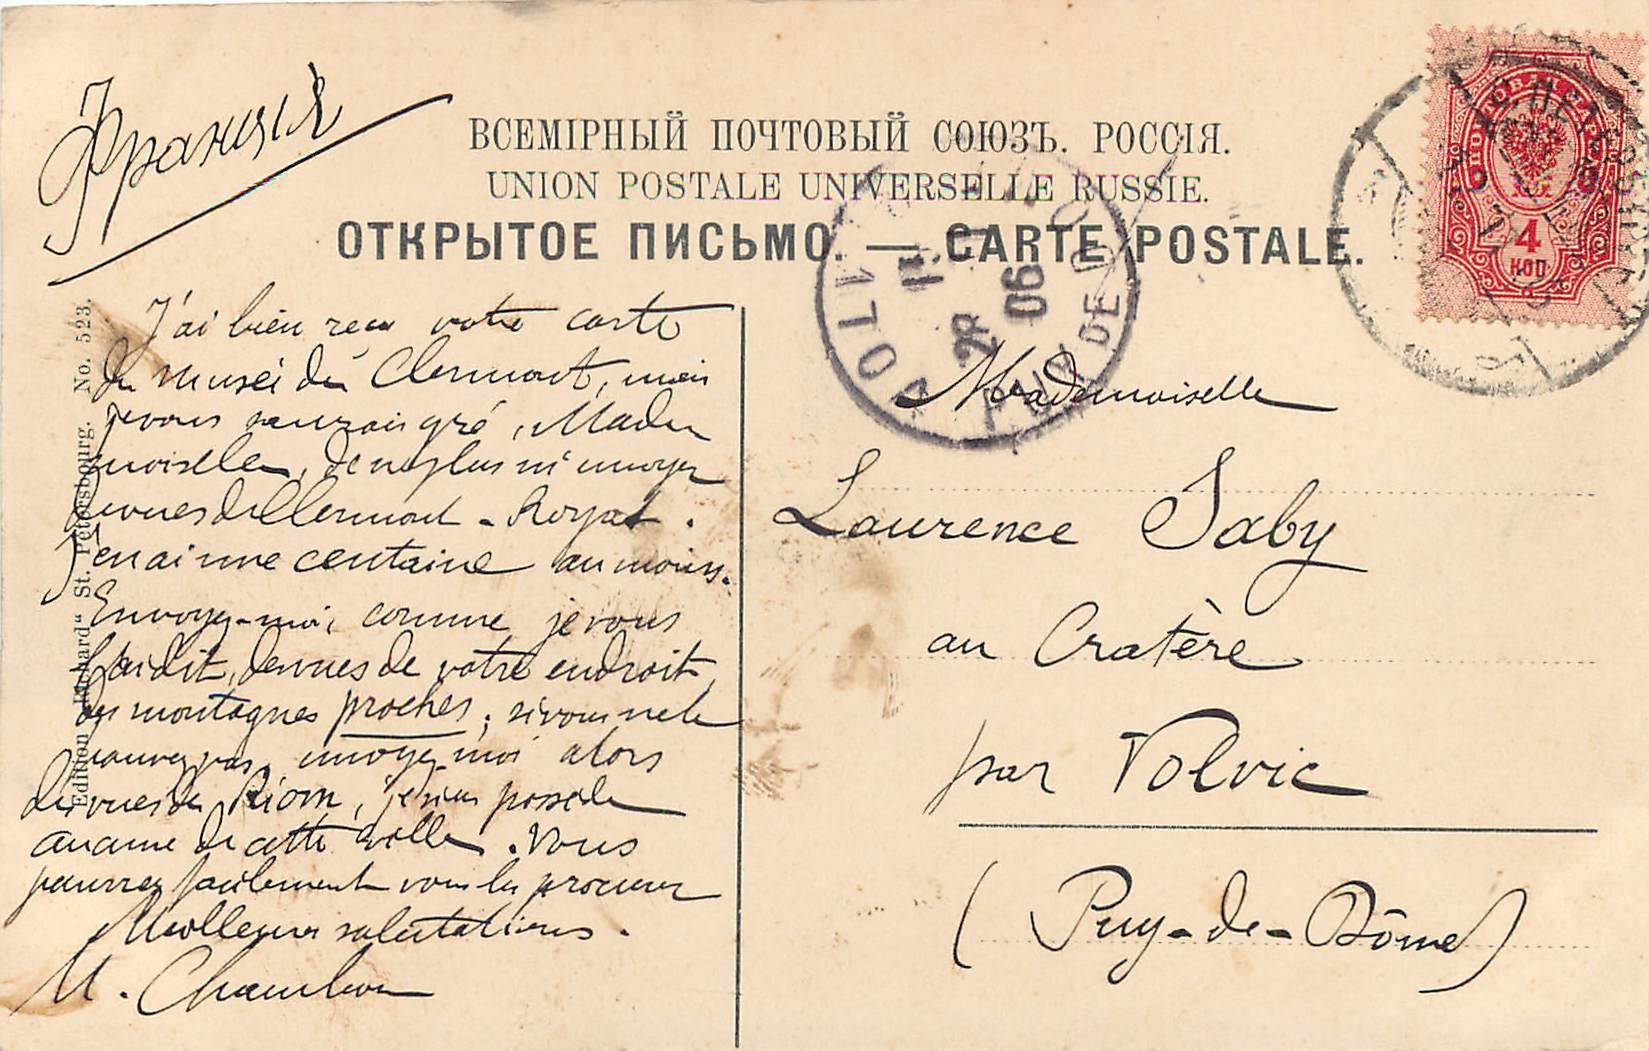 Франція
ВСЕМІРНЫЙ ПОЧТОВЫЙ СОЮЗЪ. РОССІЯ.
UNION POSTALE UNIVERSELLE RUSSIE.
ОТКРЫТОЕ ПИСЬМО. — CARTE POSTALE.
4
КОП
VOLVIC
PUY DE DO
28
06
J'ai bien reçu votre carte
du musée de Clermont, mais
je vous saurais gré, Made
moiselle, de ne plus m'envoyer
de vues de Clermont - Royat.
J'en ai une centaine au moins.
Envoyez-moi, comme je vous
l'ai dit, des vues de votre endroit,
des montagnes proches; si vous ne le
pouvez pas, envoyez-moi alors
des vues de Riom, je n'en possède
aucune de cette ville. Vous
pourrez facilement vous les procurer
Meilleures salutations.
M. Chambon
Edition "Richard" St. Pétersbourg. No. 523.
Mademoiselle
Laurence Saby
au Cratère
par Volvic
(Puy-de-Dôme)